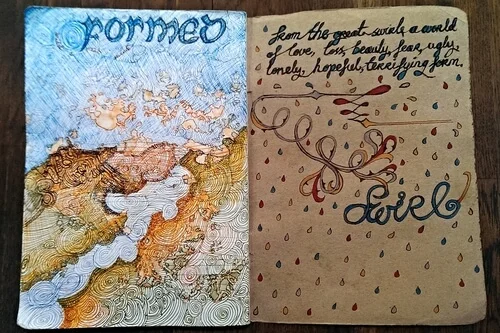 Formed
from the great swirls a world
of love, loss, beauty, fear, ugly,
lonely, hopeful, terrifying form.
Swirl